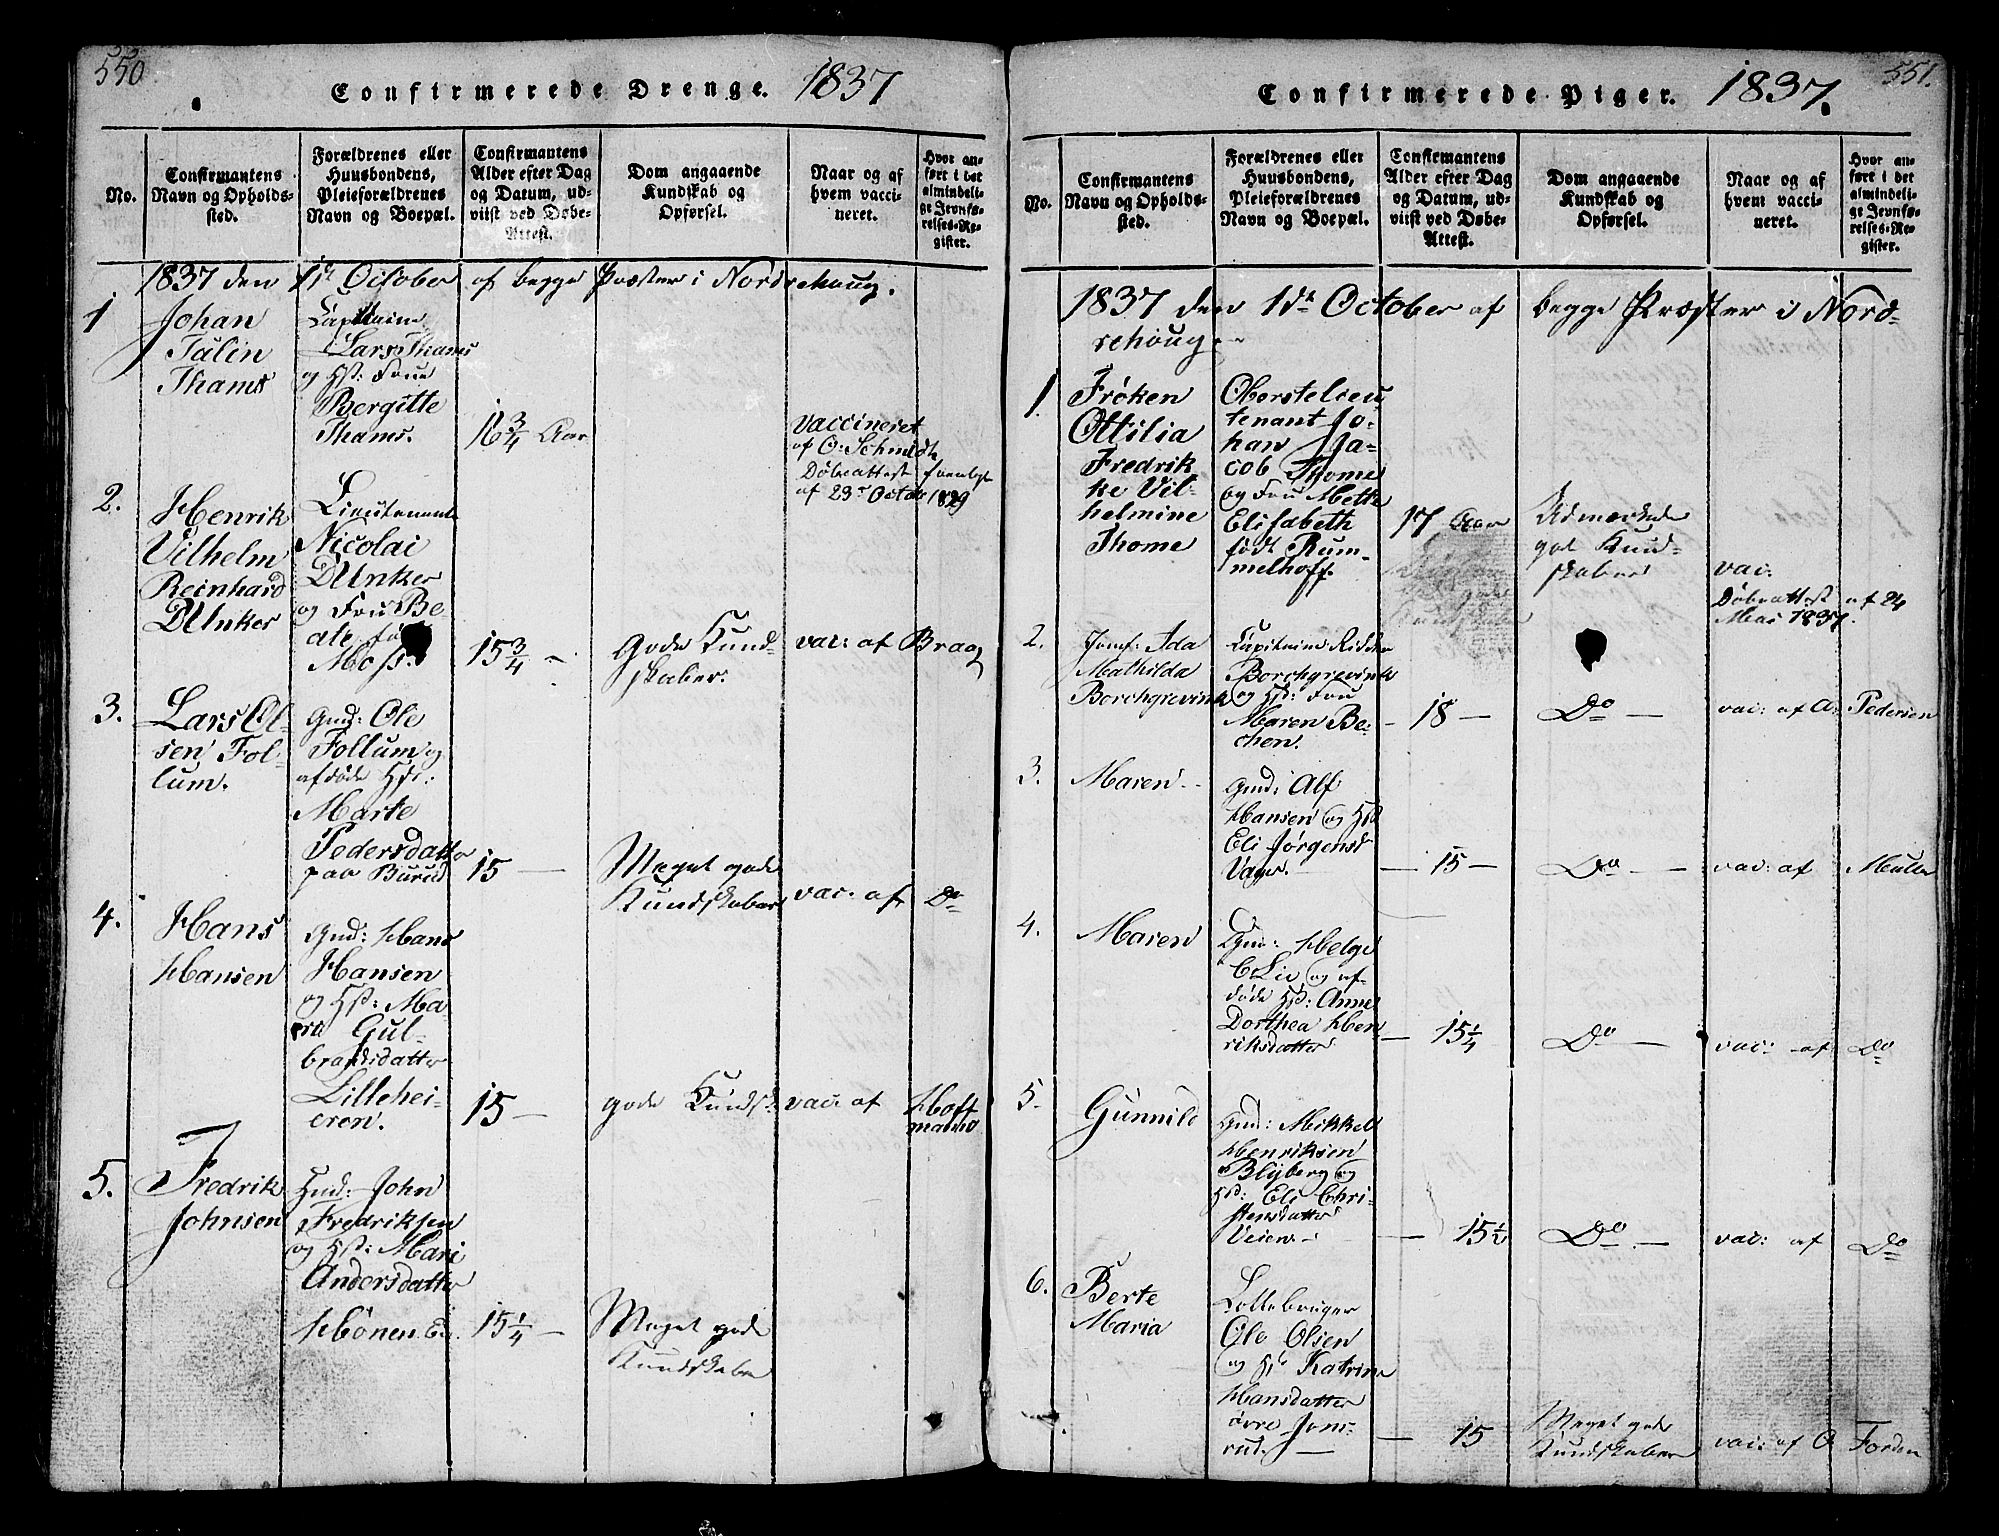 550
Confirmerede Drenge. 1837
No.
Confirmantens
Navn og Opholds-
sted.
Forældrenes eller
Huusbondens,
Pleieforældrenes
Navn og Boepæl.
Confirmantens
Alder efter Dag
og Datum, ud-
viist ved Døbe-
Attest.
Dom angaaende
Kundskab og
Opførsel.
Naar og af
hvem vacci-
neret.
Hvor an-
ført i det
almindeli-
ge Jevnfø-
relses-Re-
gister.
1837 den 1ste October af begge Præster i Nordrehaug.
1
Johan
Talin
Thams
Capitaine
Lars Thams
og Hst: Frue
Bergitte
Thams.
16 3/4 Aar
Vaccineret
af O: Schmidt
Døbeattest
af 23de Octbr 1829
2.
Henrik
Vilhelm
Reinhard
DUnker
Lieutenant
Nicolai
DUnker
og Fru Be-
ate
Moss.
15 3/4 —
Gode Kund-
skaber.
vac: af Braag
3.
Lars Ol-
sen Fol-
lum.
Gmd: Ole
Follum og
afdøde Hst:
Marte
Pedersdatter
paa Burud
15 —
Meget gode
Kundskaber
vac: af Do
4.
Hans
Hansen
Gmd: Hans
Hansen
og Hst: Ma-
ria Gul-
brandsdatter
Lillehei-
eren.
15 —
gode Kundsk:
vac: af Hoff
mand
5.
Fredrik
Johnsen
Hmd: John
Fredriksen
og Hst: Mari
Andersdatter
Hönen Ei.
15 1/4 —
Meget gode
Kundskaber
551.
Confirmerede Piger. 1837.
No.
Confirmantens
Navn og Opholds-
sted.
Forældrenes eller
Huusbondens,
Pleieforældrenes
Navn og Boepæl.
Confirmantens
Alder efter Dag
og Datum, ud-
viist ved Døbe-
Attest.
Dom angaaende
Kundskab og
Opførsel.
Naar og af
hvem vacci-
neret.
Hvor an-
ført i det
almindeli-
ge Jevnfø-
relses-Re-
gister.
1837 den 1ste October af begge Præster i Nord-
rehoug.
1.
Frøken
Ottilia
Fredrik
ke Vil-
helmine
Thome
Oberstelieu
tenant Jo-
han Ja-
cob Thome
og Fru Mette
Elisabeth
født Rum-
melhoff.
17 Aar
Udmærkede
gode Kund-
skaber
vac.
Døbeattest af 24
Mai 1837.
2.
Jomf: Ida
Mathilda
Borchgrevink
Capitaine Ridder
Borchgrevink
og Hst: Fru
Maren Be-
chen.
— 18 —
Do —
vac: af A: Pedersen
3.
Maren
Gmd: Alf
Hansen og Hst
Eli Jörgensd
Vager.
— 15 —
Do —
vac: af Muller
4.
Maren
Gmd: Helge
Lie og af-
døde Hst: Anne
Dorthea Hen
riksdatter
— 15 1/4
Do —
vac: af Do
5.
Gunnild
Gmd: Mikkell
Henriksen
Blyberg og
Hst: Eli Chri-
stensdatter
Veien.
— 15 1/2
Do —
vac: af Do
6.
Berte
Maria
Ole Olsen
og Hst Katrine
Hansdatter
övre Jons-
rud.
— 15
Meget gode
Kundskaber
vac: af O Forden